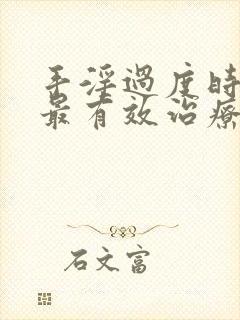 手淫過度時
最有效治療
石文富